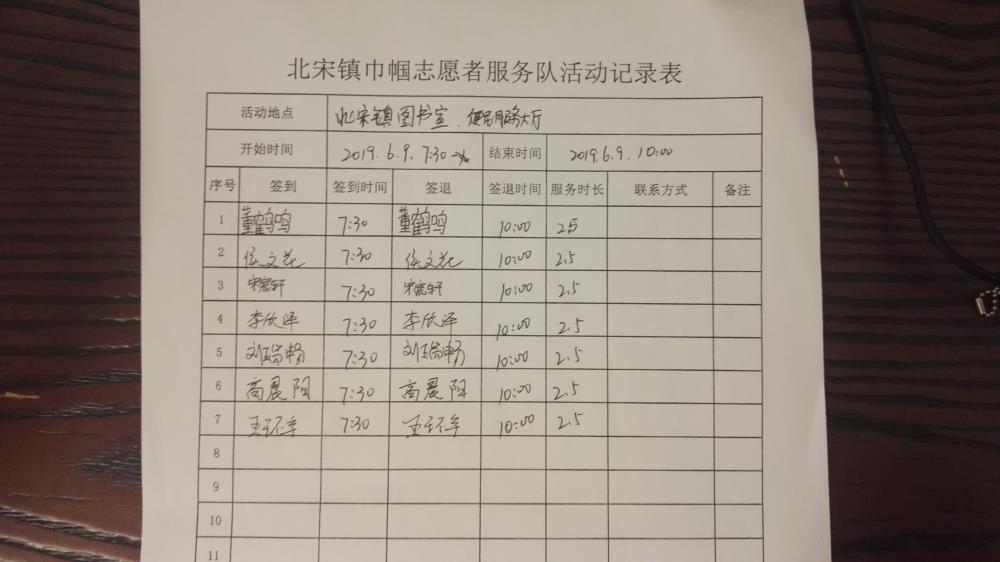 北宋镇巾帼志愿者服务队活动记录表
活动地点 北宋镇图书室、便民服务大厅
开始时间 2019.6.9. 7:30 结束时间 2019.6.9. 10:00
序号 签到 签到时间 签退 签退时间 服务时长 联系方式 备注
1 董鹤鸣 7:30 董鹤鸣 10:00 2.5
2 侯文花 7:30 侯文花 10:00 2.5
3 7:30 10:00 2.5
4 李欣泽 7:30 李欣泽 10:00 2.5
5 刘瑞畅 7:30 刘瑞畅 10:00 2.5
6 高晨阳 7:30 高晨阳 10:00 2.5
7 7:30 10:00 2.5
8
9
10
11